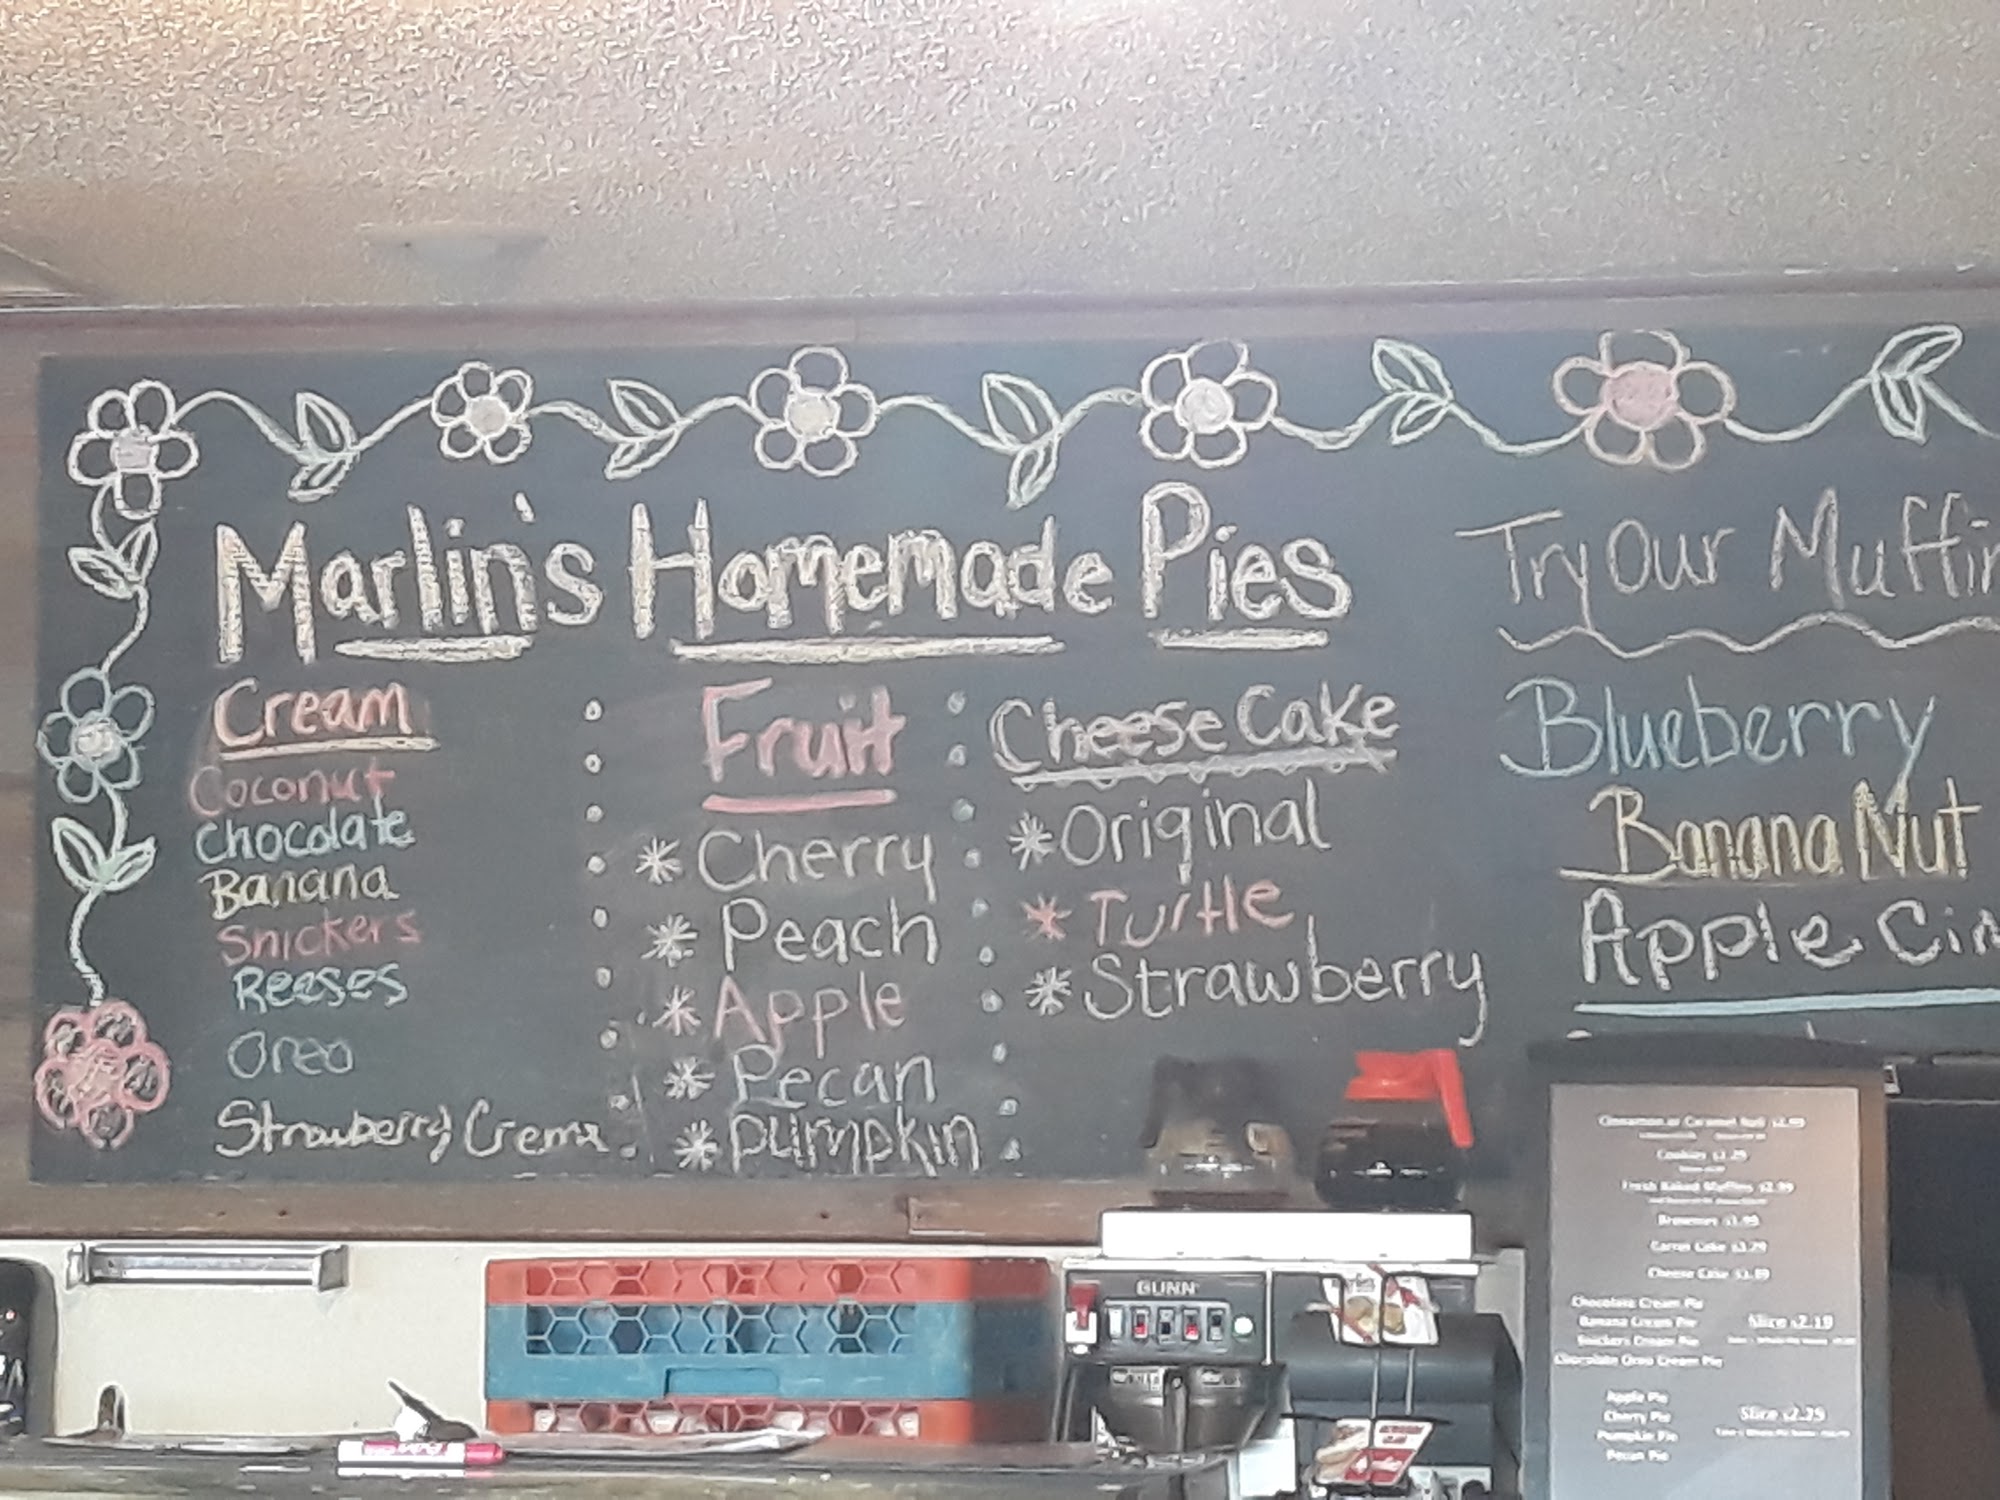 Marlin's Homemade Pies
Cream
Coconut
Chocolate
Banana
Snickers
Reeses
Oreo
Strawberry Creme
Fruit
* Cherry
* Peach
* Apple
* Pecan
* Pumpkin
Cheese Cake
* Original
* Turtle
* Strawberry
Try Our Muffin
Blueberry
Banana Nut
Apple Cin
BUNN
Cinnamon or Caramel Roll
Cookies $1.29
Fresh Baked Muffins $2.99
Brownies $1.99
Carrot Cake $3.29
Cheese Cake
Chocolate Cream Pie
Banana Cream Pie
Snickers Cream Pie
Chocolate Oreo Cream Pie
Slice $2.19
Apple Pie
Cherry Pie
Pumpkin Pie
Pecan Pie
Slice $2.25